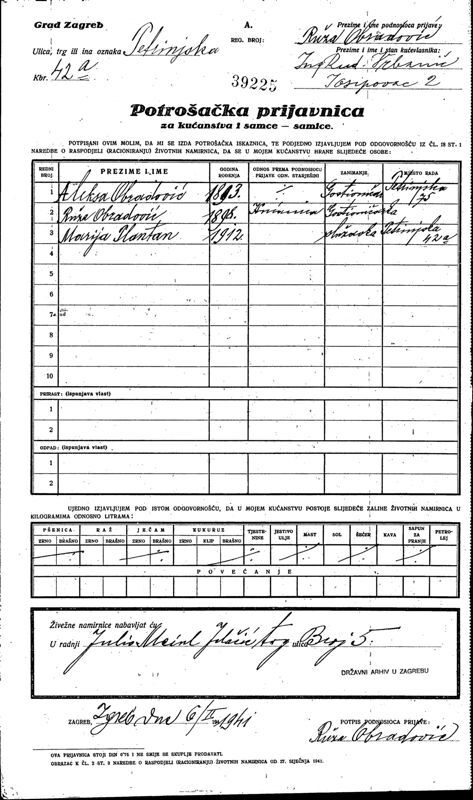 Grad Zagreb
A.
Prezime i ime podnosioca prijave:
REG. BROJ:
Ruža Obradović
Ulica, trg ili ina oznaka Petrinjska
Prezime i ime i stan kućevlasnika:
Kbr. 42a
39225
Ing Rud. Urbanić
Josipovac 2
Potrošačka prijavnica
za kućanstva i samce — samice.
POTPISANI OVIM MOLIM, DA MI SE IZDA POTROŠAČKA ISKAZNICA, TE PODJEDNO IZJAVLJUJEM POD ODGOVORNOŠĆU IZ ČL. 18 ST. 1
NAREDBE O RASPODJELI (RACIONIRANJU) ŽIVOTNIH NAMIRNICA, DA SE U MOJEM KUĆANSTVU HRANE SLIJEDEĆE OSOBE:
REDNI BROJ PREZIME I IME GODINA ROĐENJA ODNOS PREMA PODNOSIOCU PRIJAVE ODN. STARJEŠINI ZANIMANJE MJESTO RADA
1 Aleksa Obradović 1893. Petrinjska 75
2 Ruža Obradović 1898.
3 Marija Plantan 1912. Petrinjska 42a
4
5
6
7
8
9
10
PRIRAST: (ispunjava vlast)
1
2
OTPAD: (ispunjava vlast)
1
2
UJEDNO IZJAVLJUJEM POD ISTOM ODGOVORNOŠĆU, DA U MOJEM KUĆANSTVU POSTOJE SLIJEDEĆE ZALIHE ŽIVOTNIH NAMIRNICA U
KILOGRAMIMA ODNOSNO LITRAMA:
PŠENICA RAŽ JEČAM KUKURUZ TJESTENINE JESTIVO ULJE MAST SOL ŠEĆER KAVA SAPUN ZA PRANJE PETROLEJ
ZRNO BRAŠNO ZRNO BRAŠNO ZRNO BRAŠNO ZRNO KLIP BRAŠNO
POVEĆANJE
Živežne namirnice nabavljat ću:
U radnji Julio Meinl Jelačić trg ulica Broj 5
DRŽAVNI ARHIV U ZAGREBU
ZAGREB, Zgreb dne 6/II 1941
POTPIS PODNOSIOCA PRIJAVE:
Ruža Obradović
OVA PRIJAVNICA STOJI DIN 0'75 I NE SMIJE SE SKUPLJE PRODAVATI.
OBRAZAC K ČL. 2 ST. 3 NAREDBE O RASPODJELI (RACIONIRANJU) ŽIVOTNIH NAMIRNICA OD 27. SIJEČNJA 1941.